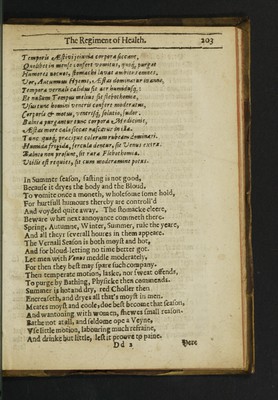 The Regiment of Health. 203
Temporis Æstivi jejunia corpora siccant,
Quolibet in mense confert vomitus, quoq; purgat
Humores nocuos, stomachi lavat ambitus omnes,
Ver, Autumnus Hyems, Æstas dominatur in anno,
Tempora vernali calidus fit aer humidusq;:
Et nullum Tempus melius fit flebothomia,
Usus tunc homini veneris confert moderatus,
Corporis & motus, ventrisq; solutio, sudor:
Balnea purgantur tunc corpora Medicinis,
Æstas more calescit nascatur in illa.
Tunc quoq; præcipue coleram rubeam dominari.
Humida frigida, fercula dentur, sit Venus extra.
Balnea non prosunt, sit rara Flebothomia.
Utilis est requies, sit cum moderamine potus.
In Summer season, fasting is not good,
Because it dryes the body and the Blood,
To vomite once a moneth, wholesome some hold,
For hurtfull humours thereby are controll'd
And voyded quite away. The stomacke cleere,
Beware what next annoyance commeth there.
Spring, Autumne, Winter, Summer, rule the yeare,
And all theyr severall houres in them appeare.
The Vernall Season is both moyst and hot,
And for blood-letting no time better got.
Let men with Venus meddle moderately,
For then they best may spare such company.
Then temperate motion, laske, nor sweat offends,
To purge by Bathing, Physicke then commends.
Summer is hot and dry, red Choller then
Encreaseth, and dryes all that's moyst in men.
Meates moyst and coole, doe best become that season,
And wantoning with women, shewes small reason.
Bathe not at all, and seldome ope a Veyne,
Use little motion, labouring much refraine,
And drinke but little, lest it prove to paine.
Dd 2 Here